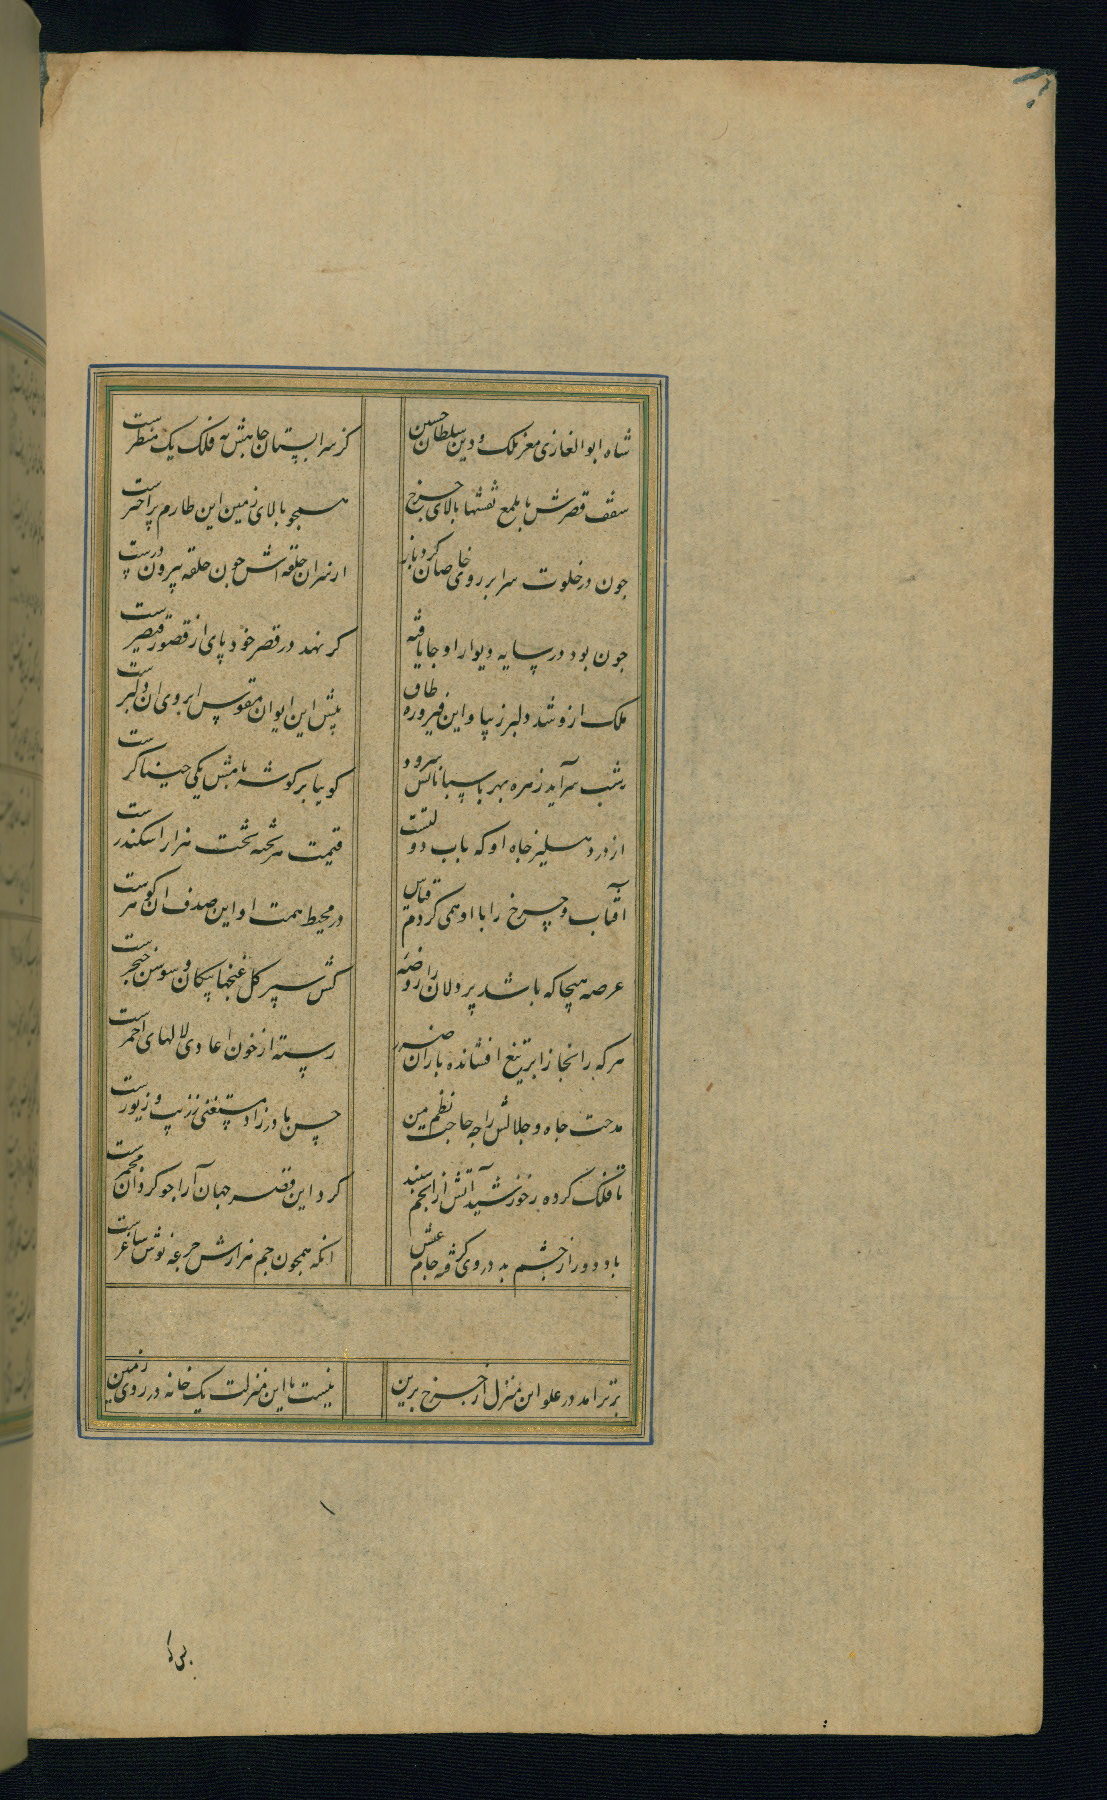 شاه ابوالغازی معز ملک و دین سلطان حسین
کز سرابستان جاهش نه فلک یک منظرست
سقف قصرش با ملمع نقشها بالای چرخ
همچو بالای زمین این طارم پر اخترست
چون در خلوت سرا بر روی خاصان کرد باز
از سران حلقه اش چون حلقه بیرون درست
چون بود در سایه دیوار او جا یافته
کر نهد در قصر خود پای از قصور قیصرست
ملک ازو شد دلبر زیبا و این فیروزه طاق
پیش این ایوان مقوس ابروی ان دلبرست
شب سرآید زهره بهر پاسبانانش سرود
کوییا بر کوشه بامش یکی خنیاکرست
از در دهلیز جاه او که باب دولتست
قیمت هر تخته تخت هزار اسکندرست
آفتاب و چرخ را با او همی کردم قیاس
در محیط همت او این صدف ان کوهرست
عرصه هیجا که باشد پر دلان را روضه
کش سپر کل غنچها پیکان و سوسن خنجرست
هر که را انجا ز ابر تیغ افشانده باران ضرر
رسته از خون اعادی لالهای احمرست
مدحت جاه و جلالش را چه حاجت نظم من
حسن مادرزاد مستغنی ز زیب و زیورست
تا فلک کرده ز خورشید آتش از انجم سپند
کرد این قصر جهان آرا چو کردان مجمرست
باد دور از چشم بد در وی کرفته جام عیش
انکه همچون جم هزارش جرعه نوش ساغرست
برتر امد در علو این منزل از چرخ برین
نیست با این منزلت یک خانه در روی زمین